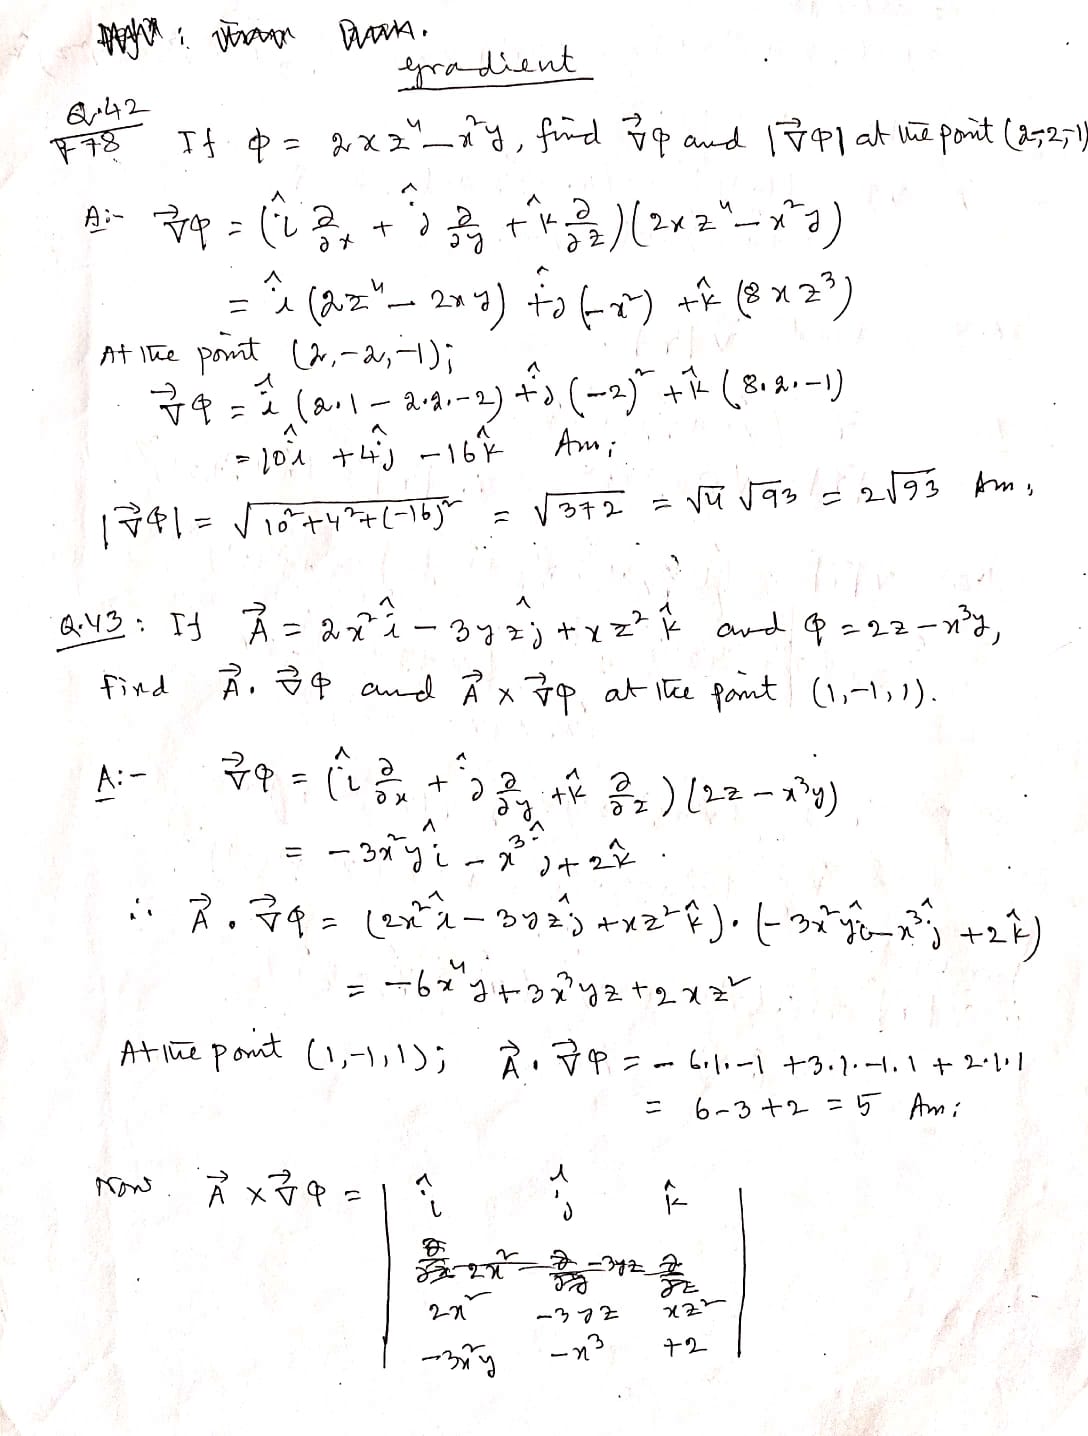 gradient
Q.42
P 78 If φ = 2xz⁴ − x²y, find ∇⃗φ and |∇⃗φ| at the point (2,-2,-1)
A:- ∇⃗φ = (î ∂/∂x + ĵ ∂/∂y + k̂ ∂/∂z)(2xz⁴ − x²y)
= î (2z⁴ − 2xy) + ĵ (−x²) + k̂ (8xz³)
At the point (2,-2,-1);
∇⃗φ = î (2.1 − 2.2.−2) + ĵ (−2)² + k̂ (8.2.−1)
= 10î + 4ĵ − 16k̂ Ans;
|∇⃗φ| = √(10²+4²+(−16)²) = √372 = √4 √93 = 2√93 Ans;
Q.43: If A⃗ = 2x²î − 3yzĵ + xz²k̂ and φ = 2z − x³y,
find A⃗. ∇⃗φ and A⃗ × ∇⃗φ at the point (1,-1,1).
A:- ∇⃗φ = (î ∂/∂x + ĵ ∂/∂y + k̂ ∂/∂z)(2z − x³y)
= −3x²yî − x³ĵ + 2k̂.
∴ A⃗. ∇⃗φ = (2x²î − 3yzĵ + xz²k̂).(−3x²yî − x³ĵ + 2k̂)
= −6x⁴y + 3x³yz + 2xz²
At the point (1,-1,1); A⃗. ∇⃗φ = −6.1.−1 + 3.1.−1.1 + 2.1.1
= 6−3+2 = 5 Ans;
Now A⃗ × ∇⃗φ = | î ĵ k̂
∂/∂x 2x² ∂/∂y −3yz ∂/∂z
2x² −3yz xz²
−3x²y −x³ +2 |